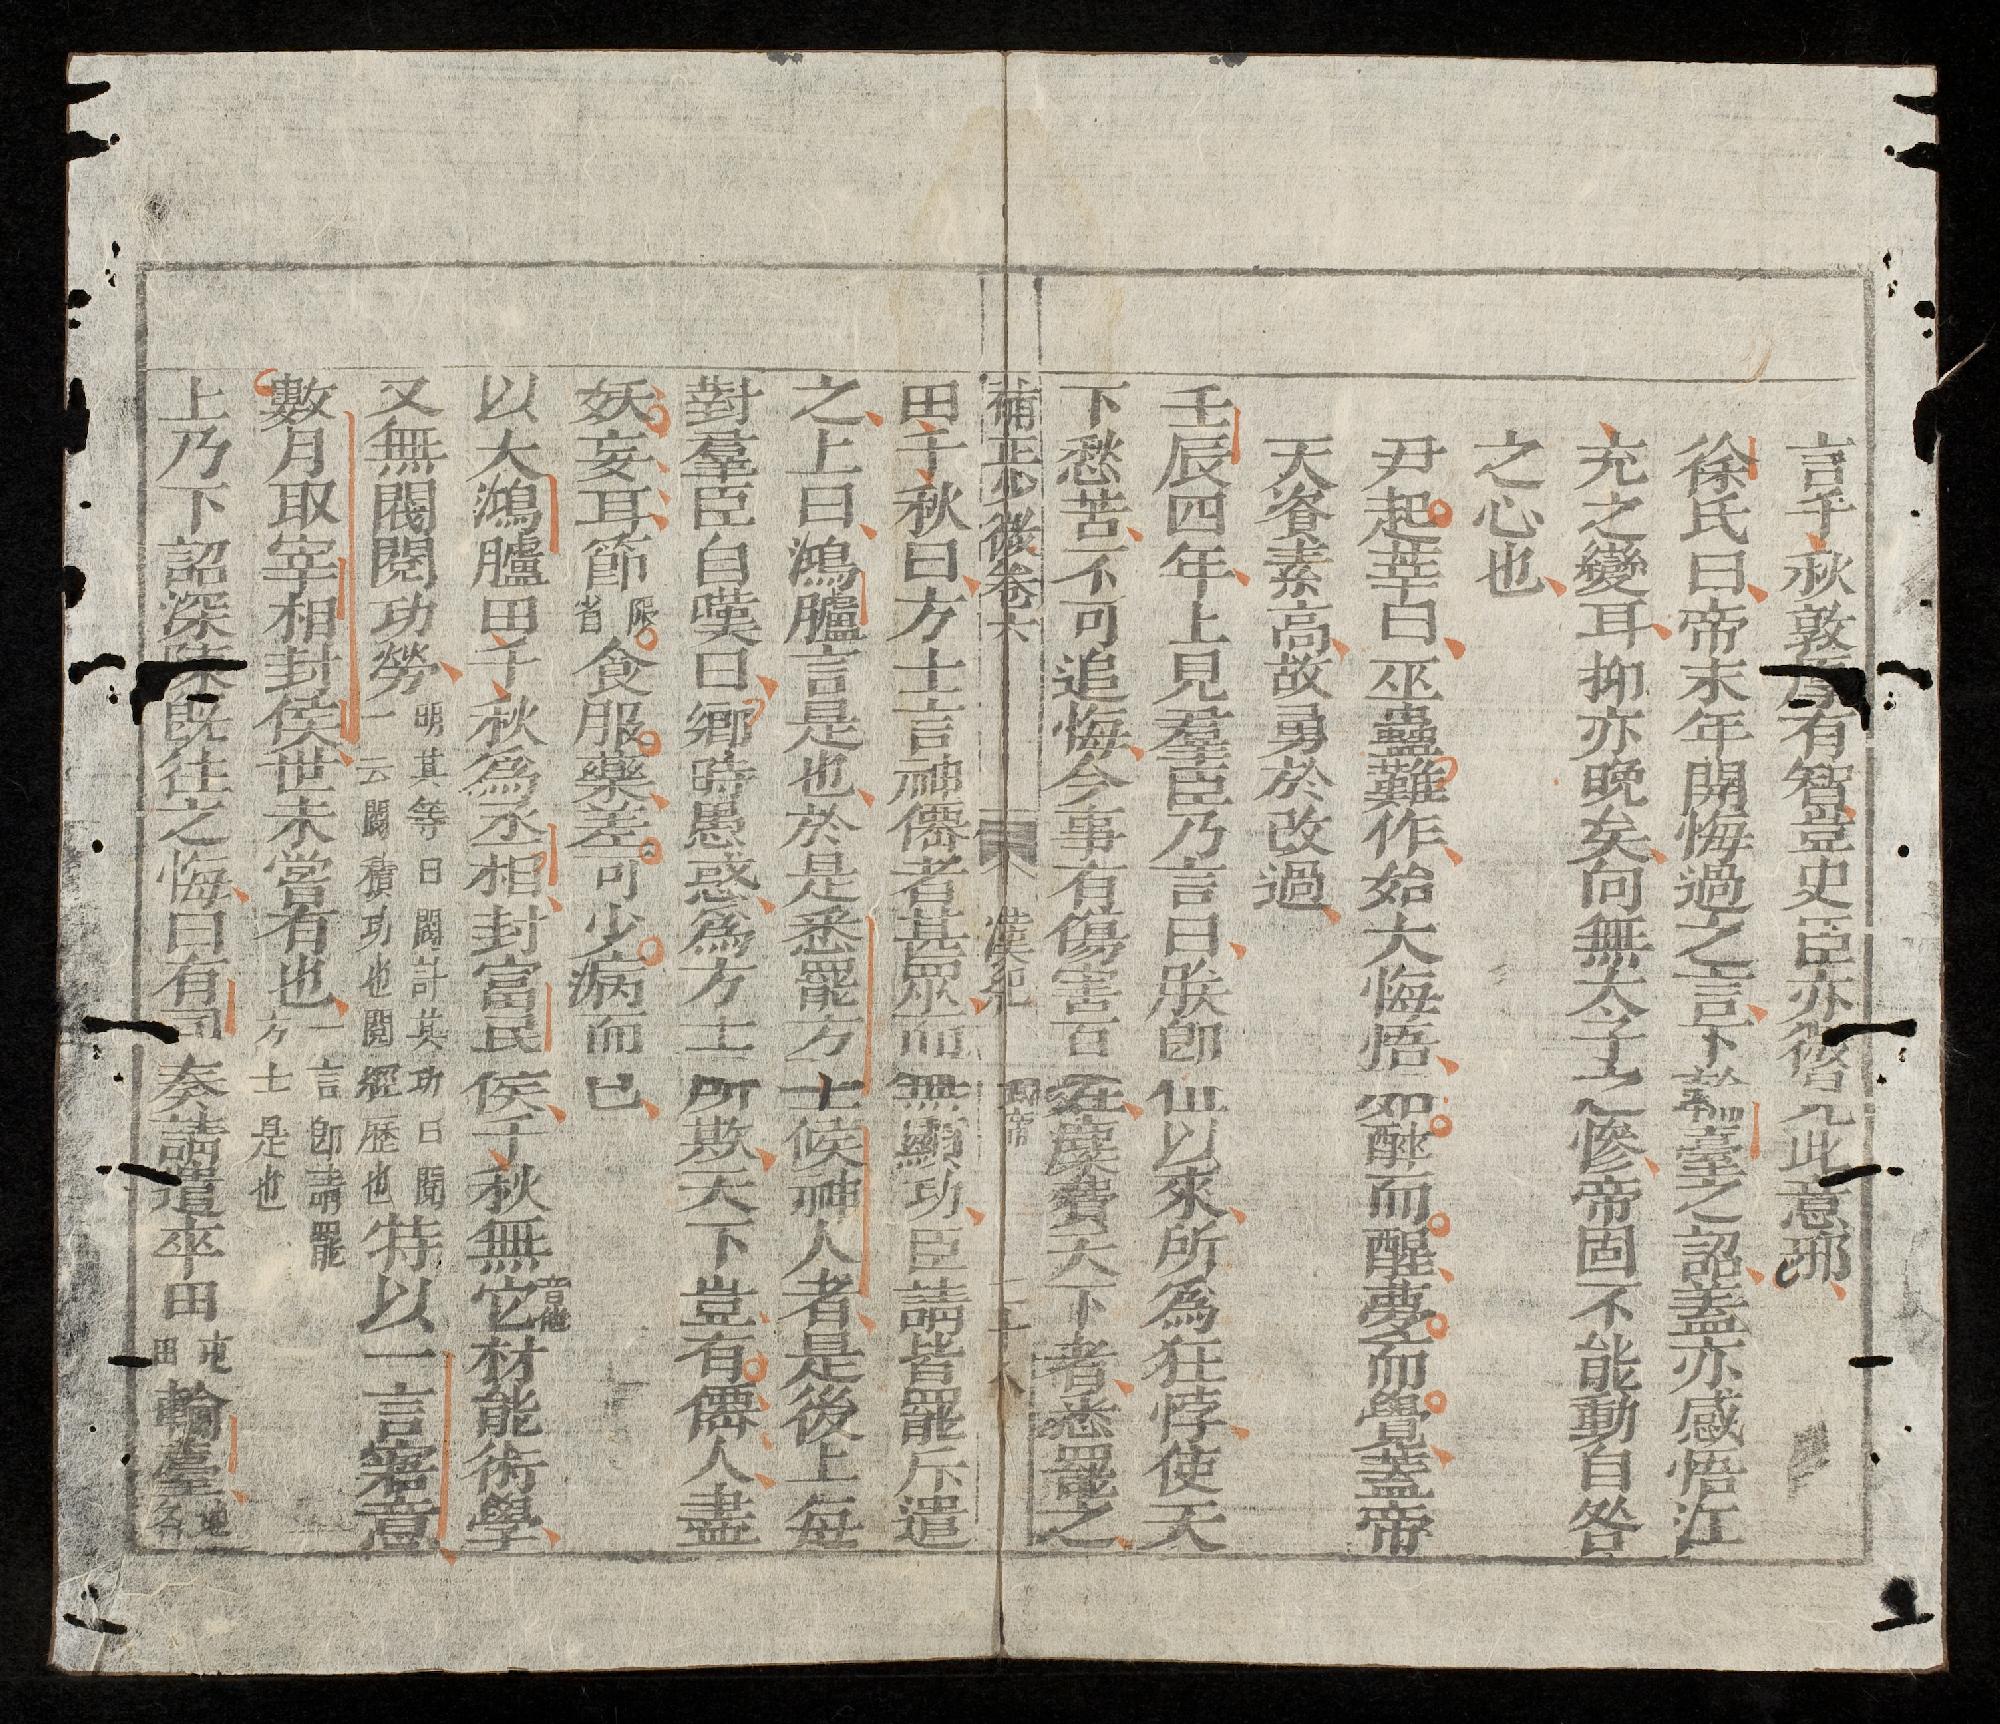 言千秋敦厚有智豈史臣亦微見此意邪
徐氏曰帝末年開悔過之言下輪臺之詔盖亦感悟江
充之變耳抑亦晚矣向無太子之慘帝固不能動自咎
之心也
尹起莘曰巫蠱難作始大悔悟如醉而醒夢而覺蓋帝
天資素高故勇於改過
壬辰四年上見羣臣乃言曰朕即位以來所為狂悖使天
下愁苦不可追悔今事有傷害百姓糜費天下者悉罷之
補正少微卷六 漢紀 武帝 二十八
田千秋曰方士言神僊者甚眾而無顯功臣請皆罷斥遣
之上曰鴻臚言是也於是悉罷方士候神人者是後上每
對羣臣自嘆曰鄉時愚惑為方士所欺天下豈有僊人盡
妖妄耳節限省食服藥差可少病而已
以大鴻臚田千秋為丞相封富民侯千秋無它材能音能術學
又無閥閱功勞明其等曰閥計其功曰閱一云閥積功也閱經歷也特以一言寤意
數月取宰相封侯世未嘗有也一言即請罷方士是也
上乃下詔深陳既往之悔曰有司奏請遣卒田屯田輪臺地名